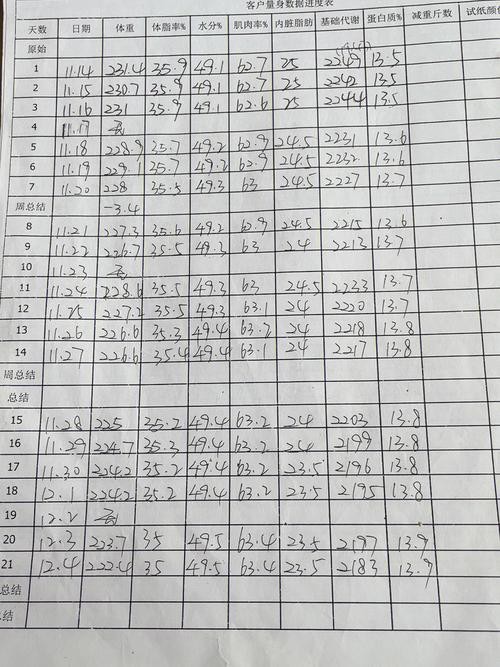 客户量身数据进度表
天数 日期 体重 体脂率% 水分% 肌肉率% 内脏脂肪 基础代谢 蛋白质% 减重斤数 试纸颜
原始
1 11.14 231.4 35.9 49.1 62.7 25 2249 13.5
2 11.15 230.7 35.9 49.1 62.7 25 2242 13.5
3 11.16 231 35.9 49.1 62.6 25 2244 13.5
4 11.17
5 11.18 228.9 35.7 49.2 62.9 24.5 2231 13.6
6 11.19 229.1 35.7 49.2 62.9 24.5 2232 13.6
7 11.20 228 35.5 49.3 63 24.5 2227 13.7
周总结 -3.4
8 11.21 227.3 35.6 49.2 62.9 24.5 2215 13.6
9 11.22 226.7 35.5 49.3 63 24 2213 13.7
10 11.23
11 11.24 228.6 35.5 49.3 63 24.5 2233 13.7
12 11.25 227.2 35.5 49.3 63.1 24 2220 13.7
13 11.26 226.6 35.3 49.4 63.2 24 2218 13.8
14 11.27 226.6 35.4 49.4 63.1 24 2217 13.8
周总结
总结
15 11.28 225 35.2 49.4 63.2 24 2203 13.8
16 11.29 224.7 35.3 49.4 63.2 24 2199 13.8
17 11.30 224.2 35.2 49.4 63.2 23.5 2196 13.8
18 12.1 224.2 35.2 49.4 63.2 23.5 2195 13.8
19 12.2
20 12.3 223.7 35 49.5 63.4 23.5 2197 13.9
21 12.4 222.4 35 49.5 63.4 23.5 2183 13.9
总结
总结